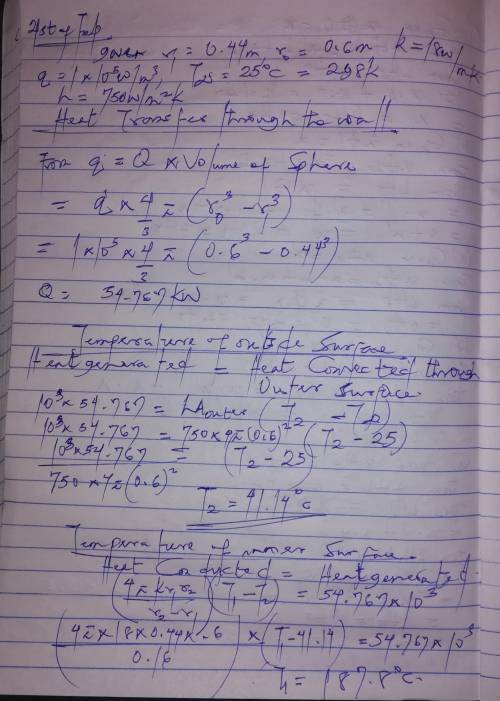 1st step
given r₁ = 0.44m r₀ = 0.6m k = 18w/mk
q = 1×10⁵w/m³, T∞ = 25°C = 298k
h = 750w/m²k
Heat Transfer through the wall
For q = Q × Volume of Sphere
= q × 4/3 π (r₀³ - r₁³)
= 1×10⁵ × 4/3 π (0.6³ - 0.44³)
Q = 54.767kw
Temperature of outside Surface
Heat generated = Heat Convected through
Outer Surface.
10³ × 54.767 = hAouter (T₂ - T∞)
10³ × 54.767 = 750×4π(0.6)² (T₂ - 25)
10³×54.767 / 750×4π(0.6)² = (T₂ - 25)
T₂ = 41.14°c
Temperature of inner Surface.
Heat Conducted = Heat generated
(4πkr₁r₂ / r₂-r₁) (T₁-T₂) = 54.767×10³
(4π×18×0.44×.6 / 0.16) × (T₁-41.14) = 54.767×10³
T₁ = 187.8°c.